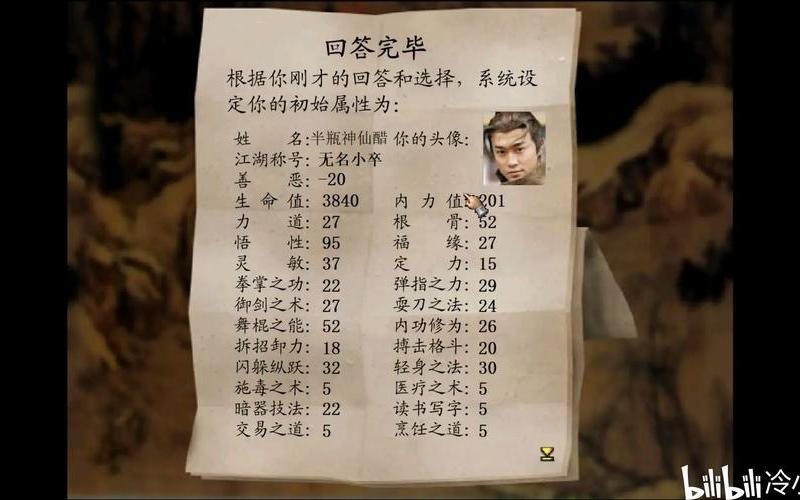 回答完毕
根据你刚才的回答和选择，系统设
定你的初始属性为：
姓名：半瓶神仙醋 你的头像：
江湖称号：无名小卒
善恶：-20
生命值：3840 内力值：201
力道：27 根骨：52
悟性：95 福缘：27
灵敏：37 定力：15
拳掌之功：22 弹指之力：29
御剑之术：27 耍刀之法：24
舞棍之能：52 内功修为：26
拆招卸力：18 搏击格斗：20
闪躲纵跃：32 轻身之法：30
施毒之术：5 医疗之术：5
暗器技法：22 读书写字：5
交易之道：5 烹饪之道：5
bilibili 冷